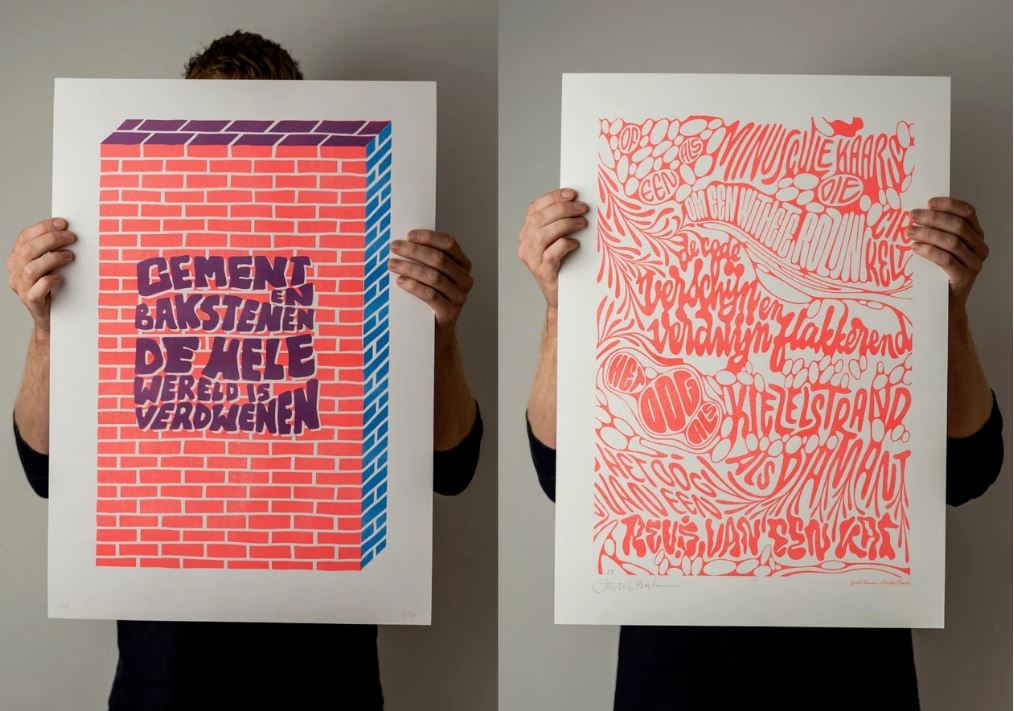 CEMENT
EN
BAKSTENEN
DE HELE
WERELD IS
VERDWENEN
OP ALS MINUSCULE
EEN DIE
OM EEN CIR
KELT
de
verschijn en
verdwijn flakkerend
HET OOG ALS KIEZELSTRAND
ALS DIAMANT
HET OOG
VAN EEN
REUS, VAN EEN KAT